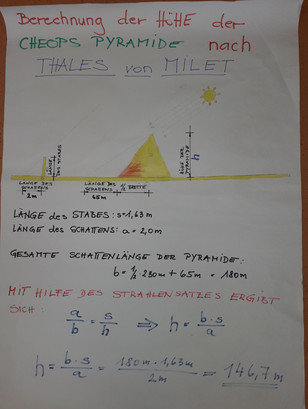 Berechnung der HÖHE der
CHEOPS PYRAMIDE nach
THALES von MILET
LÄNGE DES STABES
HÖHE DER PYRAMIDE
h
LÄNGE DES SCHATTENS
2m
LÄNGE DES SCHATTENS
½ BREITE
65m
LÄNGE des STABES: s=1,63m
LÄNGE des SCHATTENS: a = 2,0m
GESAMTE SCHATTENLÄNGE DER PYRAMIDE:
b = ½ 230m + 65m = 180m
MIT HILFE DES STRAHLENSATZES ERGIBT
SICH:
a/b = s/h ⇒ h = b·s/a
h = b·s/a = 180m·1,63m/2m = 146,7m